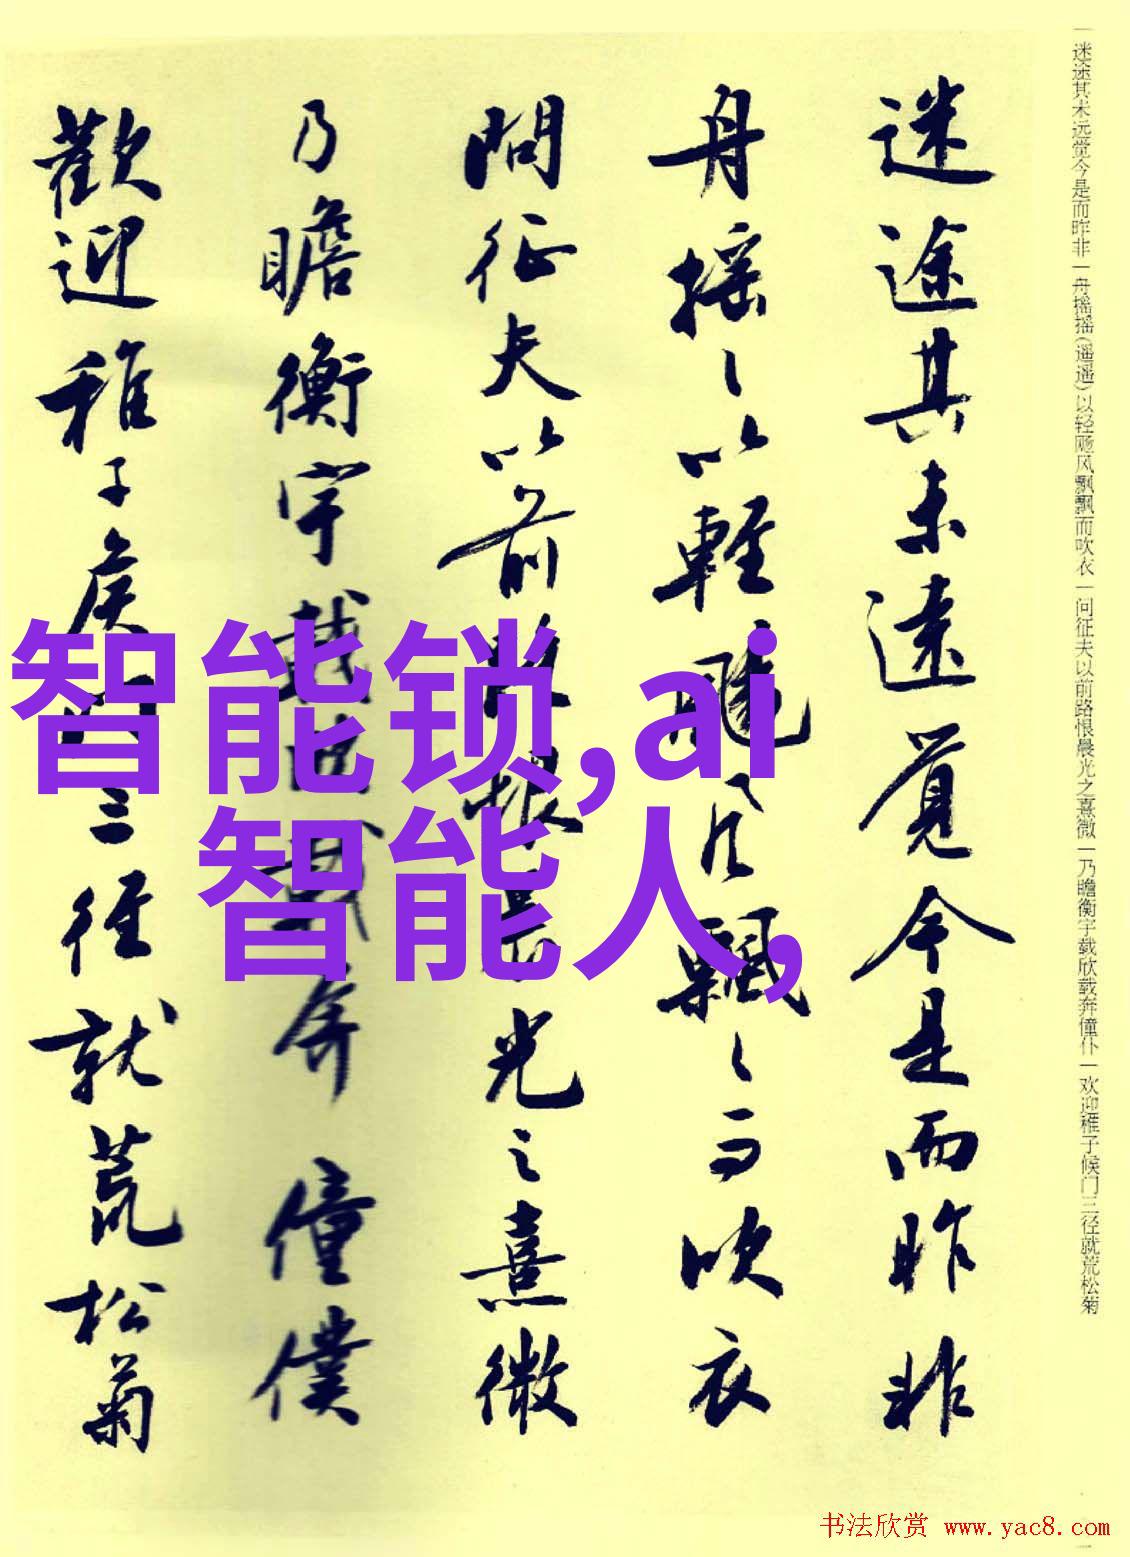 一迷途其未远觉今是而昨非一舟摇摇(遥遥)以轻飏风飘飘而吹衣一问征夫以前路恨晨光之熹微一乃瞻衡宇载欣载奔僮仆一欢迎稚子候门三径就荒松菊
迷途其未遠覺今是而昨非
舟摇〻以輕颺風飄〻而吹衣
問征夫以前路恨晨光之熹微
乃瞻衡宇載欣載奔僮僕
歡迎稚子候門三徑就荒松菊
智能锁,ai
智能人,
书法欣赏 www.yac8.com